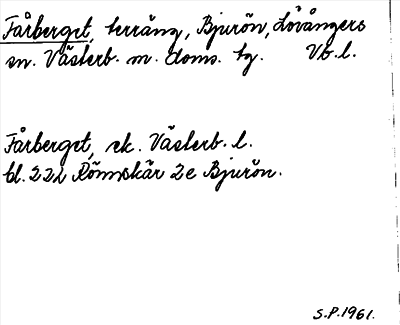 Fårberget, terräng, Bjurön, Lövångers
sn. Västerb. m. doms. tg. Vb. l.
Fårberget, ek. Västerb. l.
bl. 22L Rönnskär 2e Bjurön.
S.P. 1961.